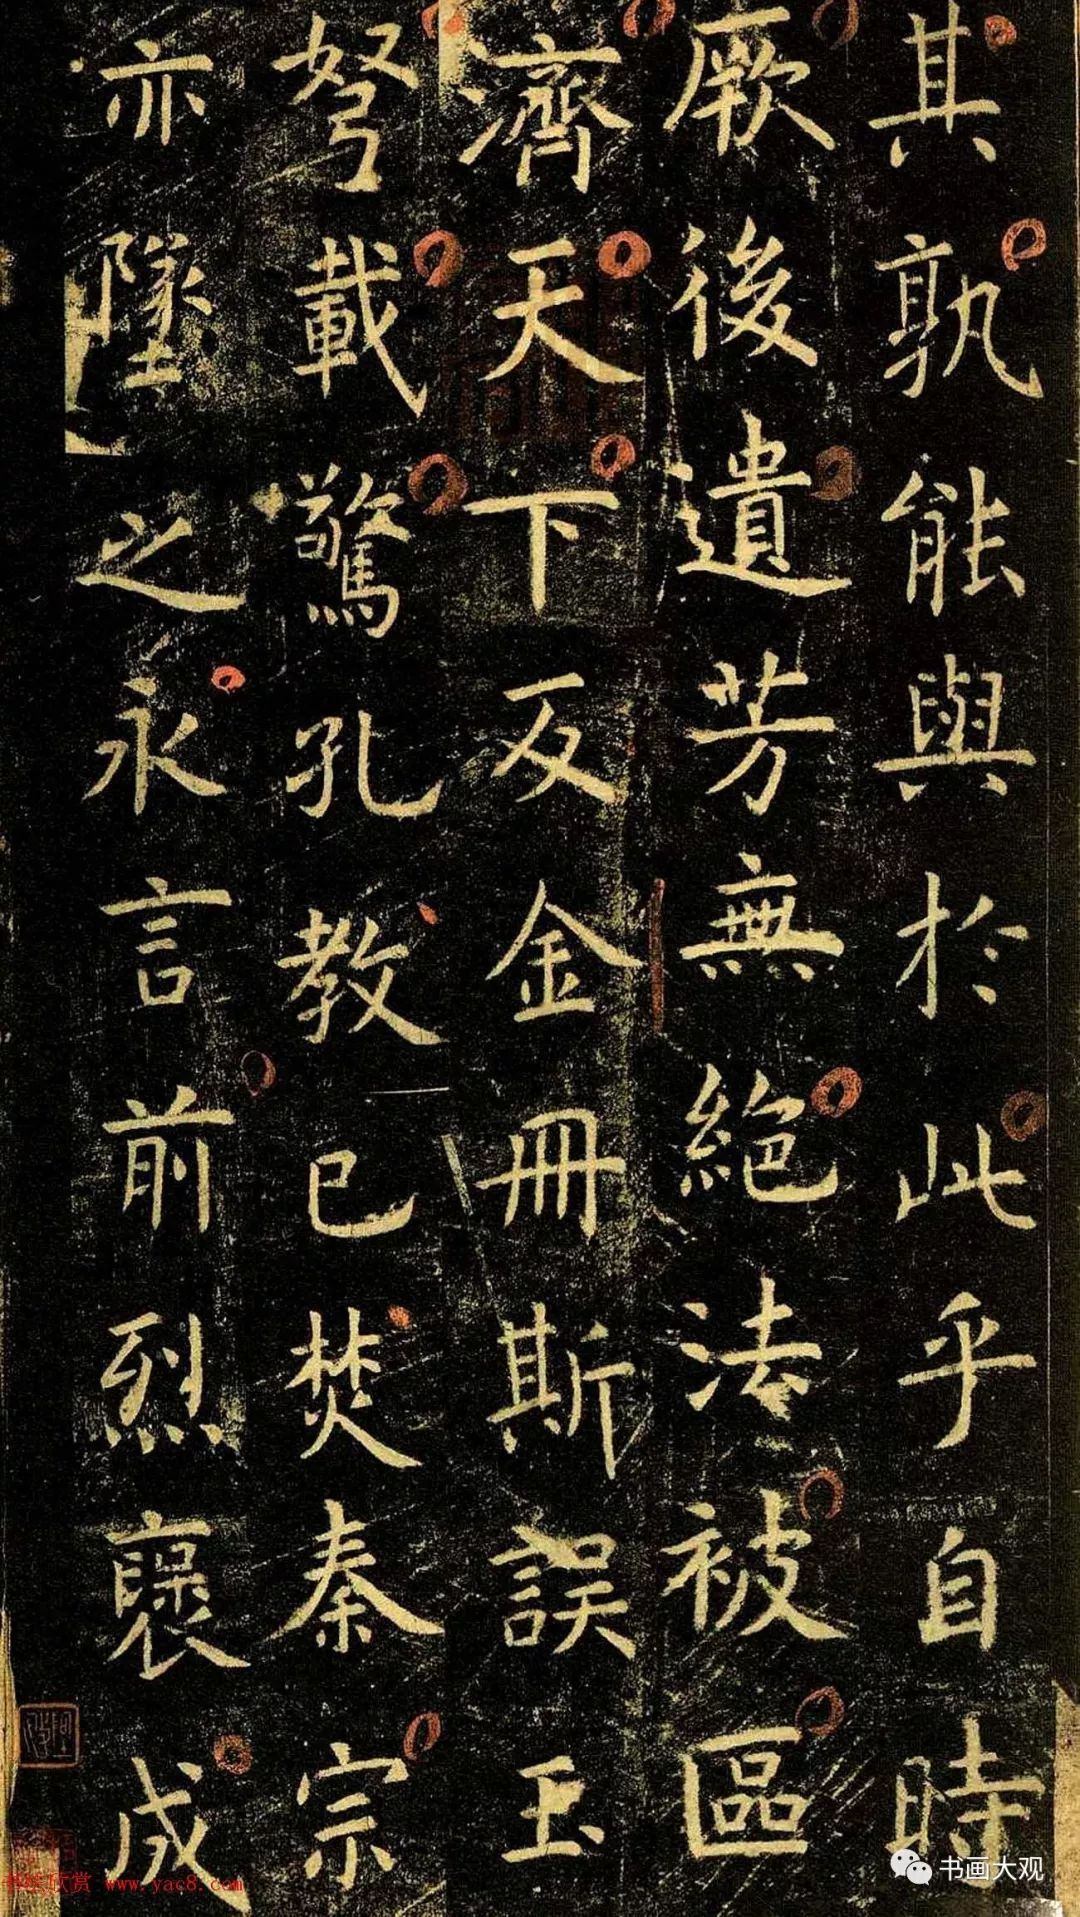 其孰能與於此乎自時
厥後遺芳無絕法被區
濟天下反金冊斯誤玉
弩載驚孔教已焚秦宗
亦墜之永言前烈褒成
书画大观
www.yac8.com